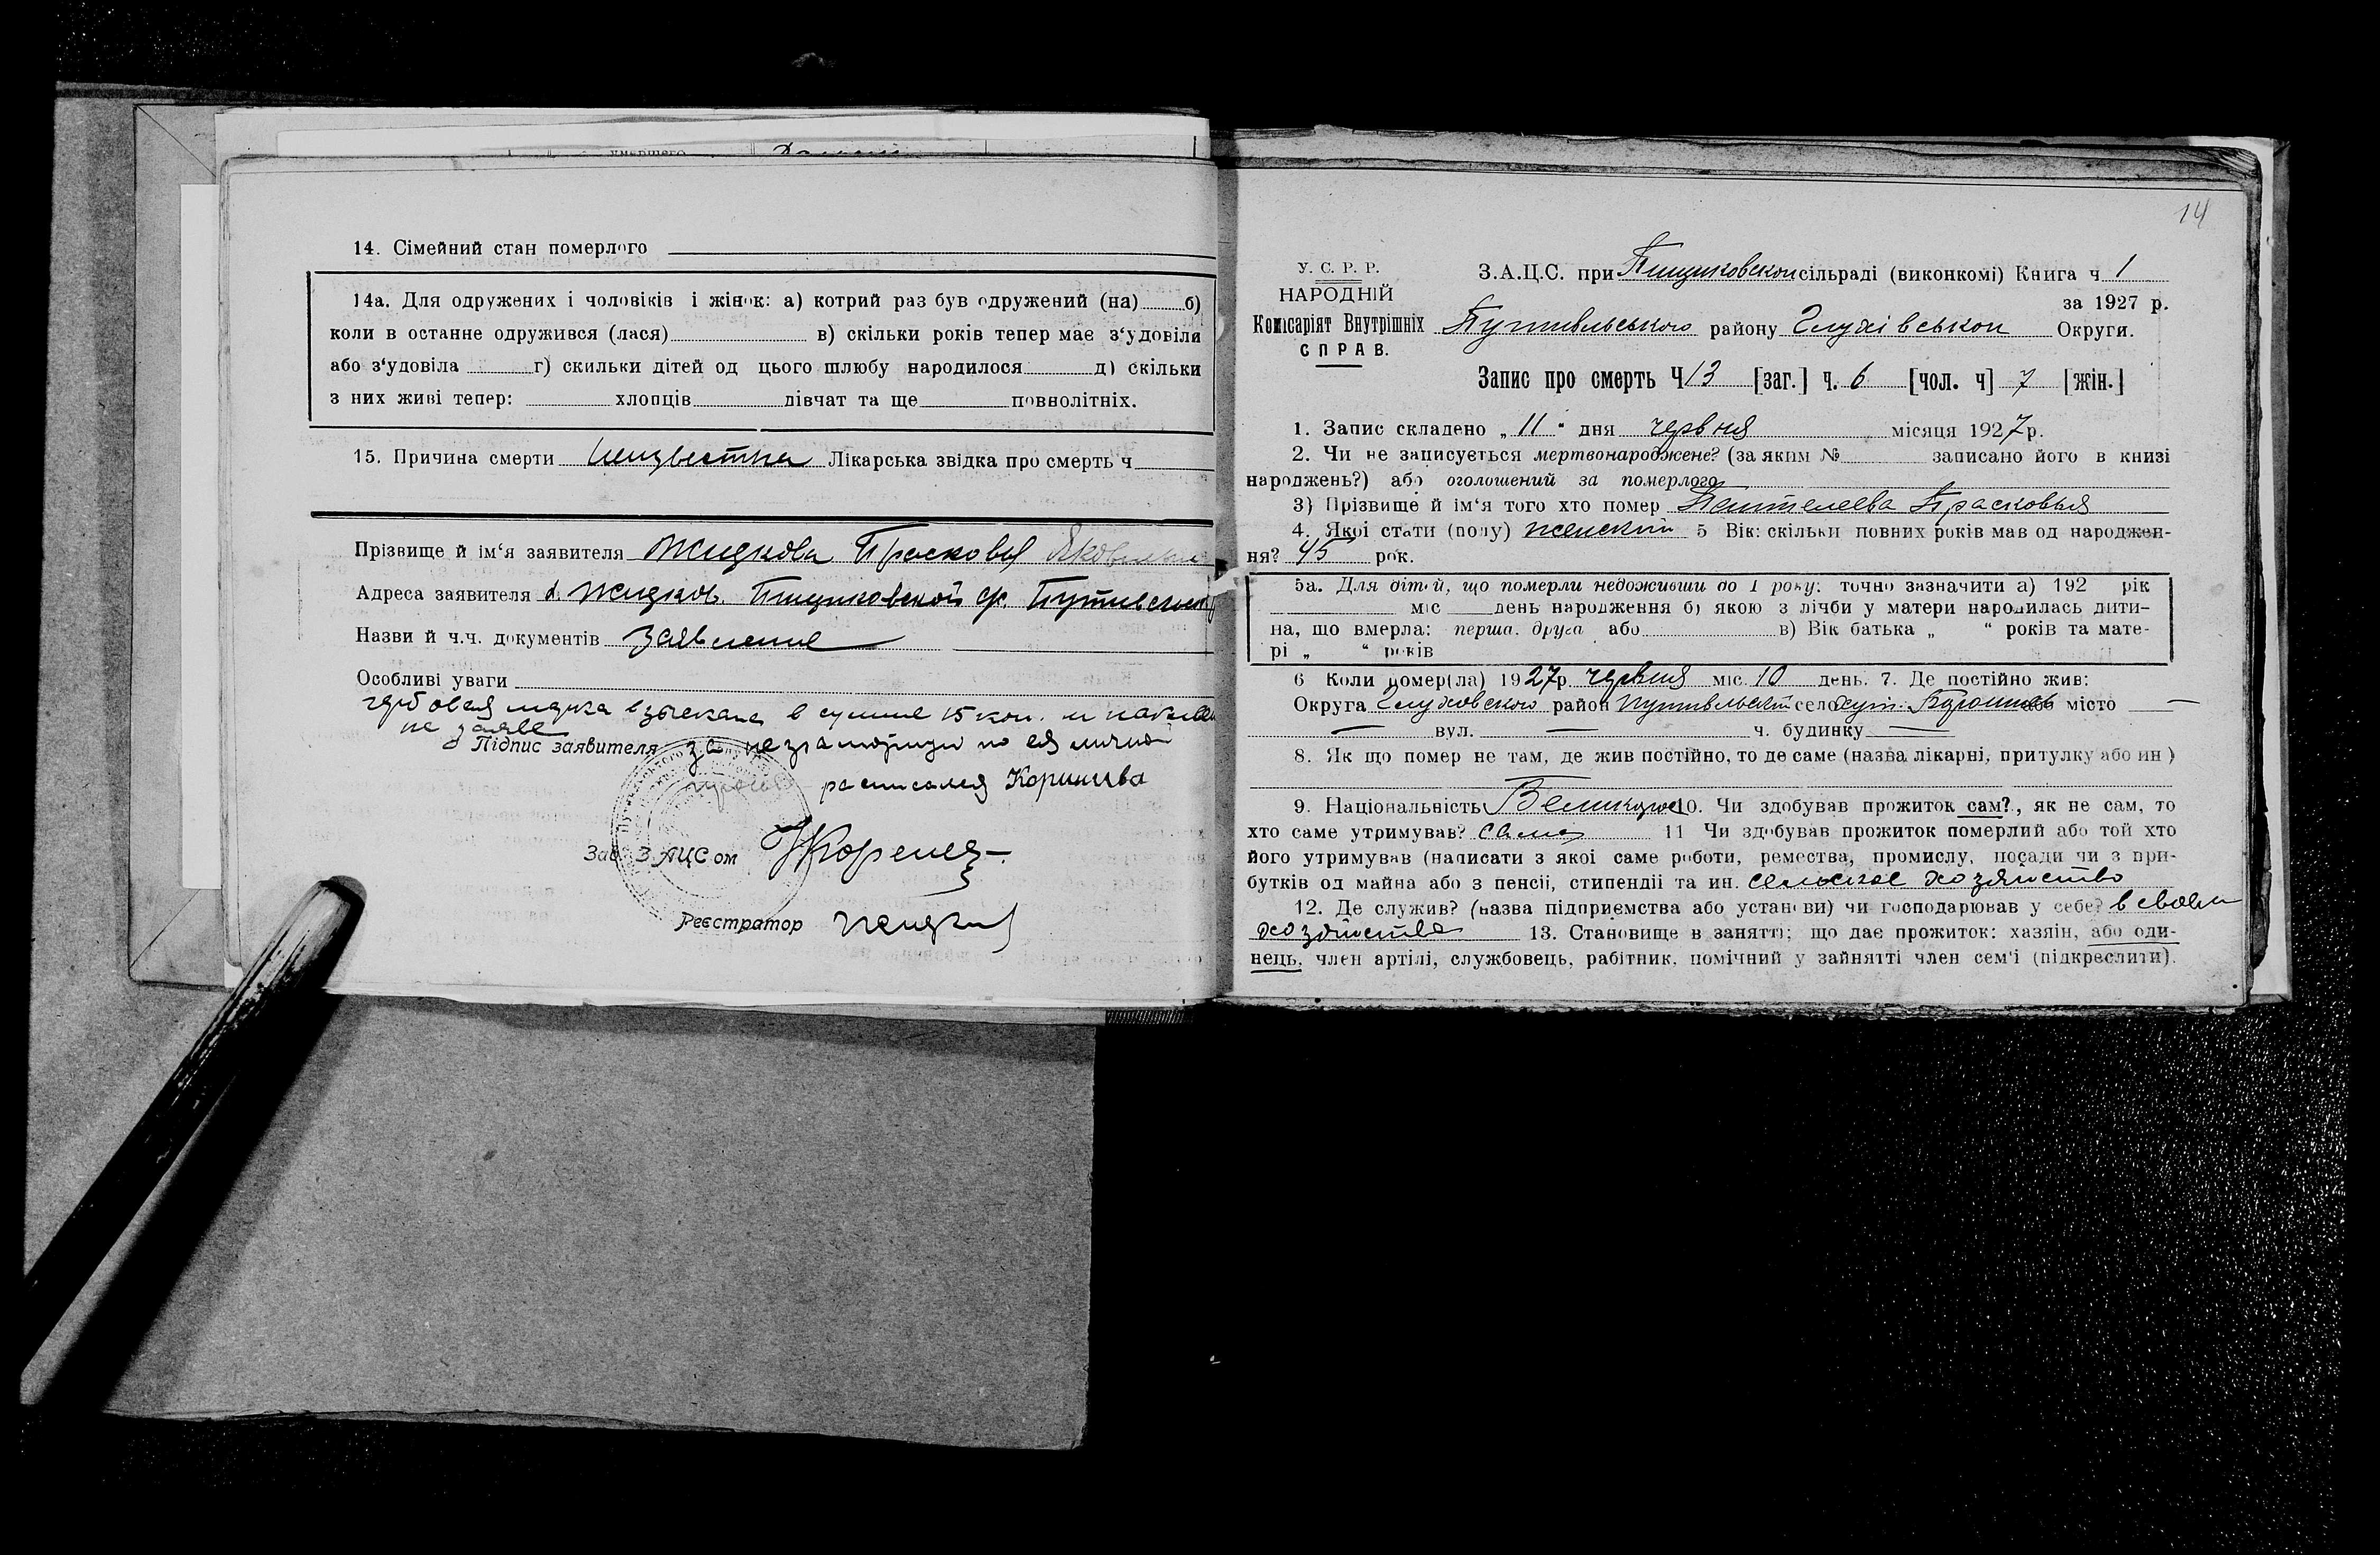 14. Сімейний стан померлого
14а. Для одружених і чоловіків і жінок: а) котрий раз був одружений (на) б)
коли в останне одружився (лася) в) скільки років тепер має з‘удовіли
або з‘удовіла г) скильки дітей од цього шлюбу народилося д) скільки
з них живі тепер: хлопців дівчат та ще повнолітніх.
15. Причина смерти Неизвестна Лікарська звідка про смерть ч
Прізвище й ім‘я заявителя Жидкова Прасковья Яковлевна
Адреса заявителя д. Жидков. Пищиковской с/с Путивльского
Назви й ч.ч. документів Заявление
Особливі уваги
гербовая марка взыскана в сумме 15 коп. и наклеен
на заяве
Підпис заявителя за неграмотную по её личной
просьбе расписался Коринева
Зав. ЗАЦСом
Реєстратор
14
У. С. Р. Р.
НАРОДНІЙ
Комісаріят Внутрішніх
СПРАВ.
З.А.Ц.С. при Пищиковской сільраді (виконкомі) Книга ч 1
за 1927 р.
Путивльського району Глухівськои Округи.
Запис про смерть Ч 13 [заг.] ч. 6 [чол. ч] 7 [жін.]
1. Запис складено „ 11 “ дня червня місяця 1927 р.
2. Чи не записується мертвонароджене? (за яким № записано його в книзі
народжень?) або оголошений за померлого
3) Прізвище й ім‘я того хто помер Пантелеева Прасковья
4. Якої стати (полу) женский 5 Вік: скільки повних років мав од народжен-
ня? 45 рок.
5а. Для дітей, що померли недоживши до 1 року: точно зазначити а) 192 рік
міс день народження б) якою з лічби у матери народилась дити-
на, що вмерла: перша, друга або в) Вік батька „ “ років та мате-
рі „ “ років
6 Коли помер(ла) 1927р. червня міс. 10 день. 7. Де постійно жив:
Округа Глуховского район Путивльский село хут. місто —
— вул. — ч. будинку —
8. Як що помер не там, де жив постійно, то де саме (назва лікарні, притулку або ин )
9. Національність 10. Чи здобував прожиток сам?, як не сам, то
хто саме утримував? сама 11 Чи здобував прожиток померлий або той хто
його утримував (написати з якої саме роботи, ремества, промислу, посади чи з при-
бутків од майна або з пенсіі, стипендіі та ин. сельское хозяйство
12. Де служив? (назва підприємства або установи) чи господарював у себе? в своем
хозяйстве 13. Становище в занятті; що дає прожиток: хазяін, або оди-
нець, член артілі, службовець, рабітник, помічний у зайнятті член сем‘і (підкреслити).